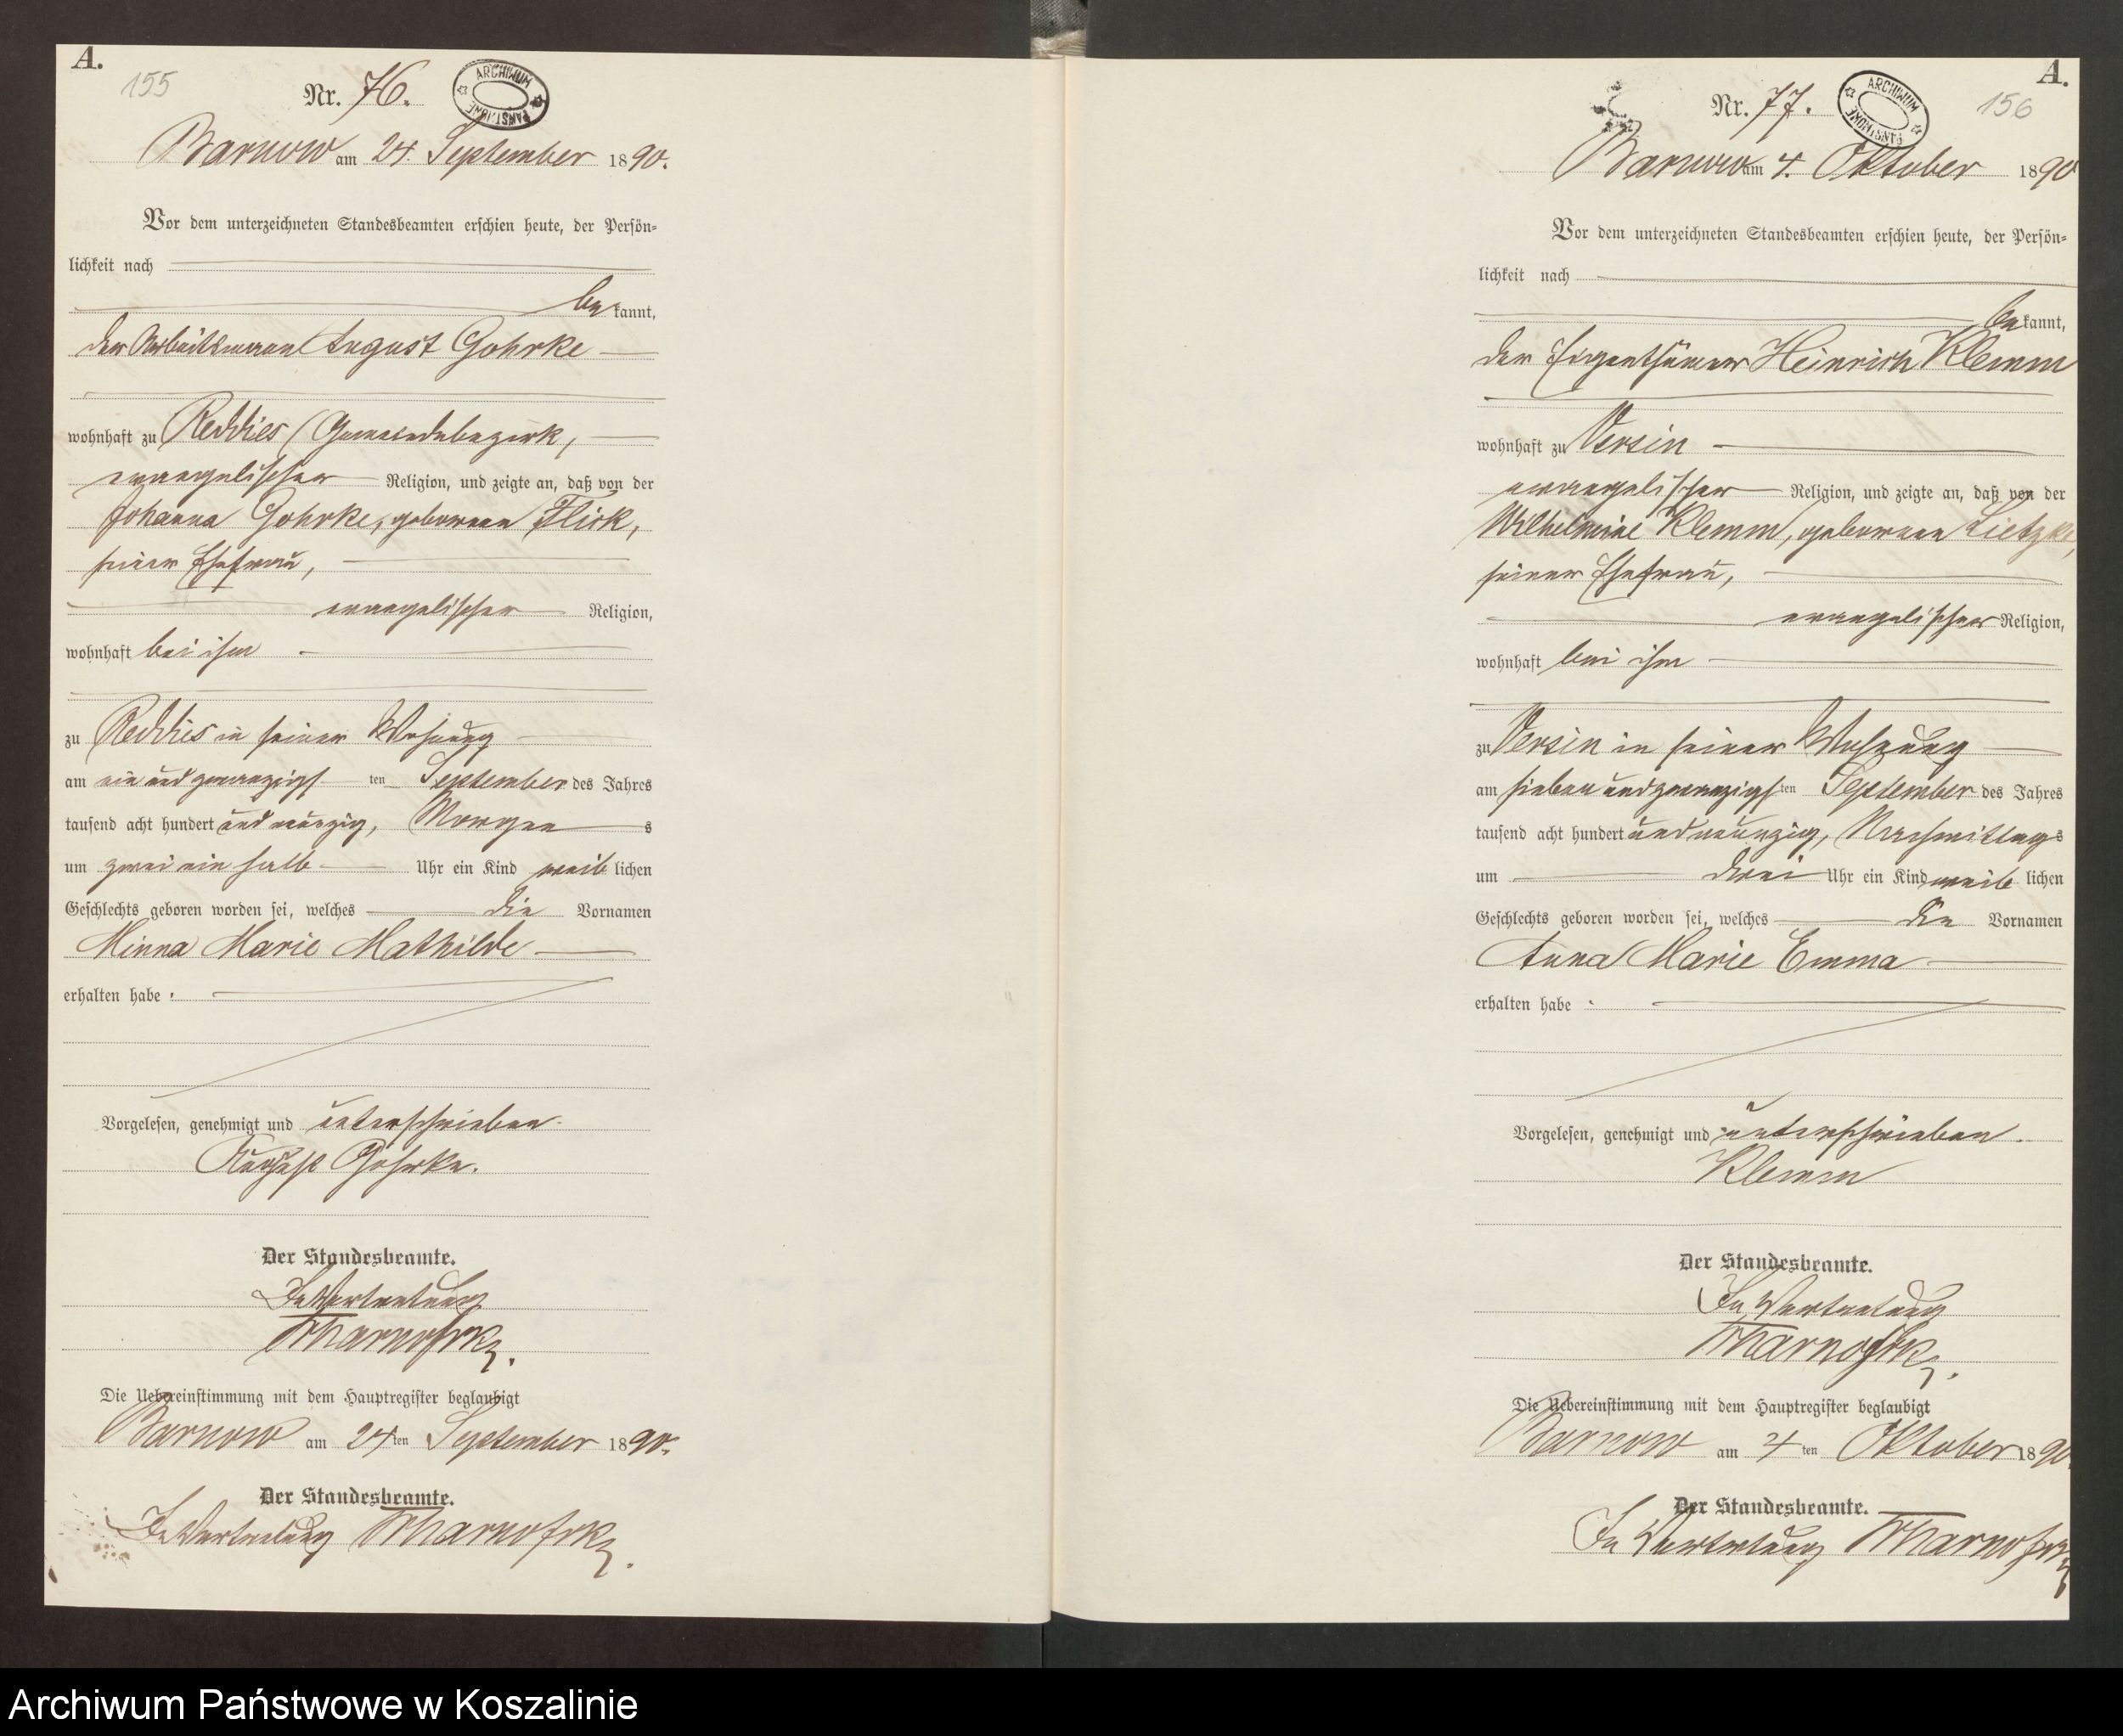 A.
155
Nr. 76.
ARCHIWUM PAŃSTWOWE
Barnow am 24. September 1890.
Vor dem unterzeichneten Standesbeamten erschien heute, der Persön-
lichkeit nach
bekannt,
der Arbeitsmann August Gohrke
wohnhaft zu Reddies (Gemeindebezirk,
evangelischer Religion, und zeigte an, daß von der
Johanna Gohrke, geborenen Flick,
seiner Ehefrau,
evangelischer Religion,
wohnhaft bei ihm
zu Reddies in seiner Wohnung
am ein und zwanzigsten September des Jahres
tausend acht hundert und neunzig, Morgens
um zwei ein halb Uhr ein Kind weiblichen
Geschlechts geboren worden sei, welches die Vornamen
Minna Marie Mathilde
erhalten habe.
Vorgelesen, genehmigt und unterschrieben.
August Gohrke.
Der Standesbeamte.
In Vertretung
Die Uebereinstimmung mit dem Hauptregister beglaubigt
Barnow am 24ten September 1890.
Der Standesbeamte.
In Vertretung
A.
156
Nr. 77.
ARCHIWUM PAŃSTWOWE
Barnow am 4. Oktober 1890
Vor dem unterzeichneten Standesbeamten erschien heute, der Persön-
lichkeit nach
bekannt,
der Eigenthümer Heinrich Klemm
wohnhaft zu Versin
evangelischer Religion, und zeigte an, daß von der
Wilhelmine Klemm, geborenen Lietzke,
seiner Ehefrau,
evangelischer Religion,
wohnhaft bei ihm
zu Versin in seiner Wohnung
am sieben und zwanzigsten September des Jahres
tausend acht hundert und neunzig, Nachmittags
um drei Uhr ein Kind weiblichen
Geschlechts geboren worden sei, welches die Vornamen
Anna Marie Emma
erhalten habe.
Vorgelesen, genehmigt und unterschrieben.
Klemm
Der Standesbeamte.
In Vertretung
Die Uebereinstimmung mit dem Hauptregister beglaubigt
Barnow am 4ten Oktober 1890.
Der Standesbeamte.
In Vertretung
Archiwum Państwowe w Koszalinie